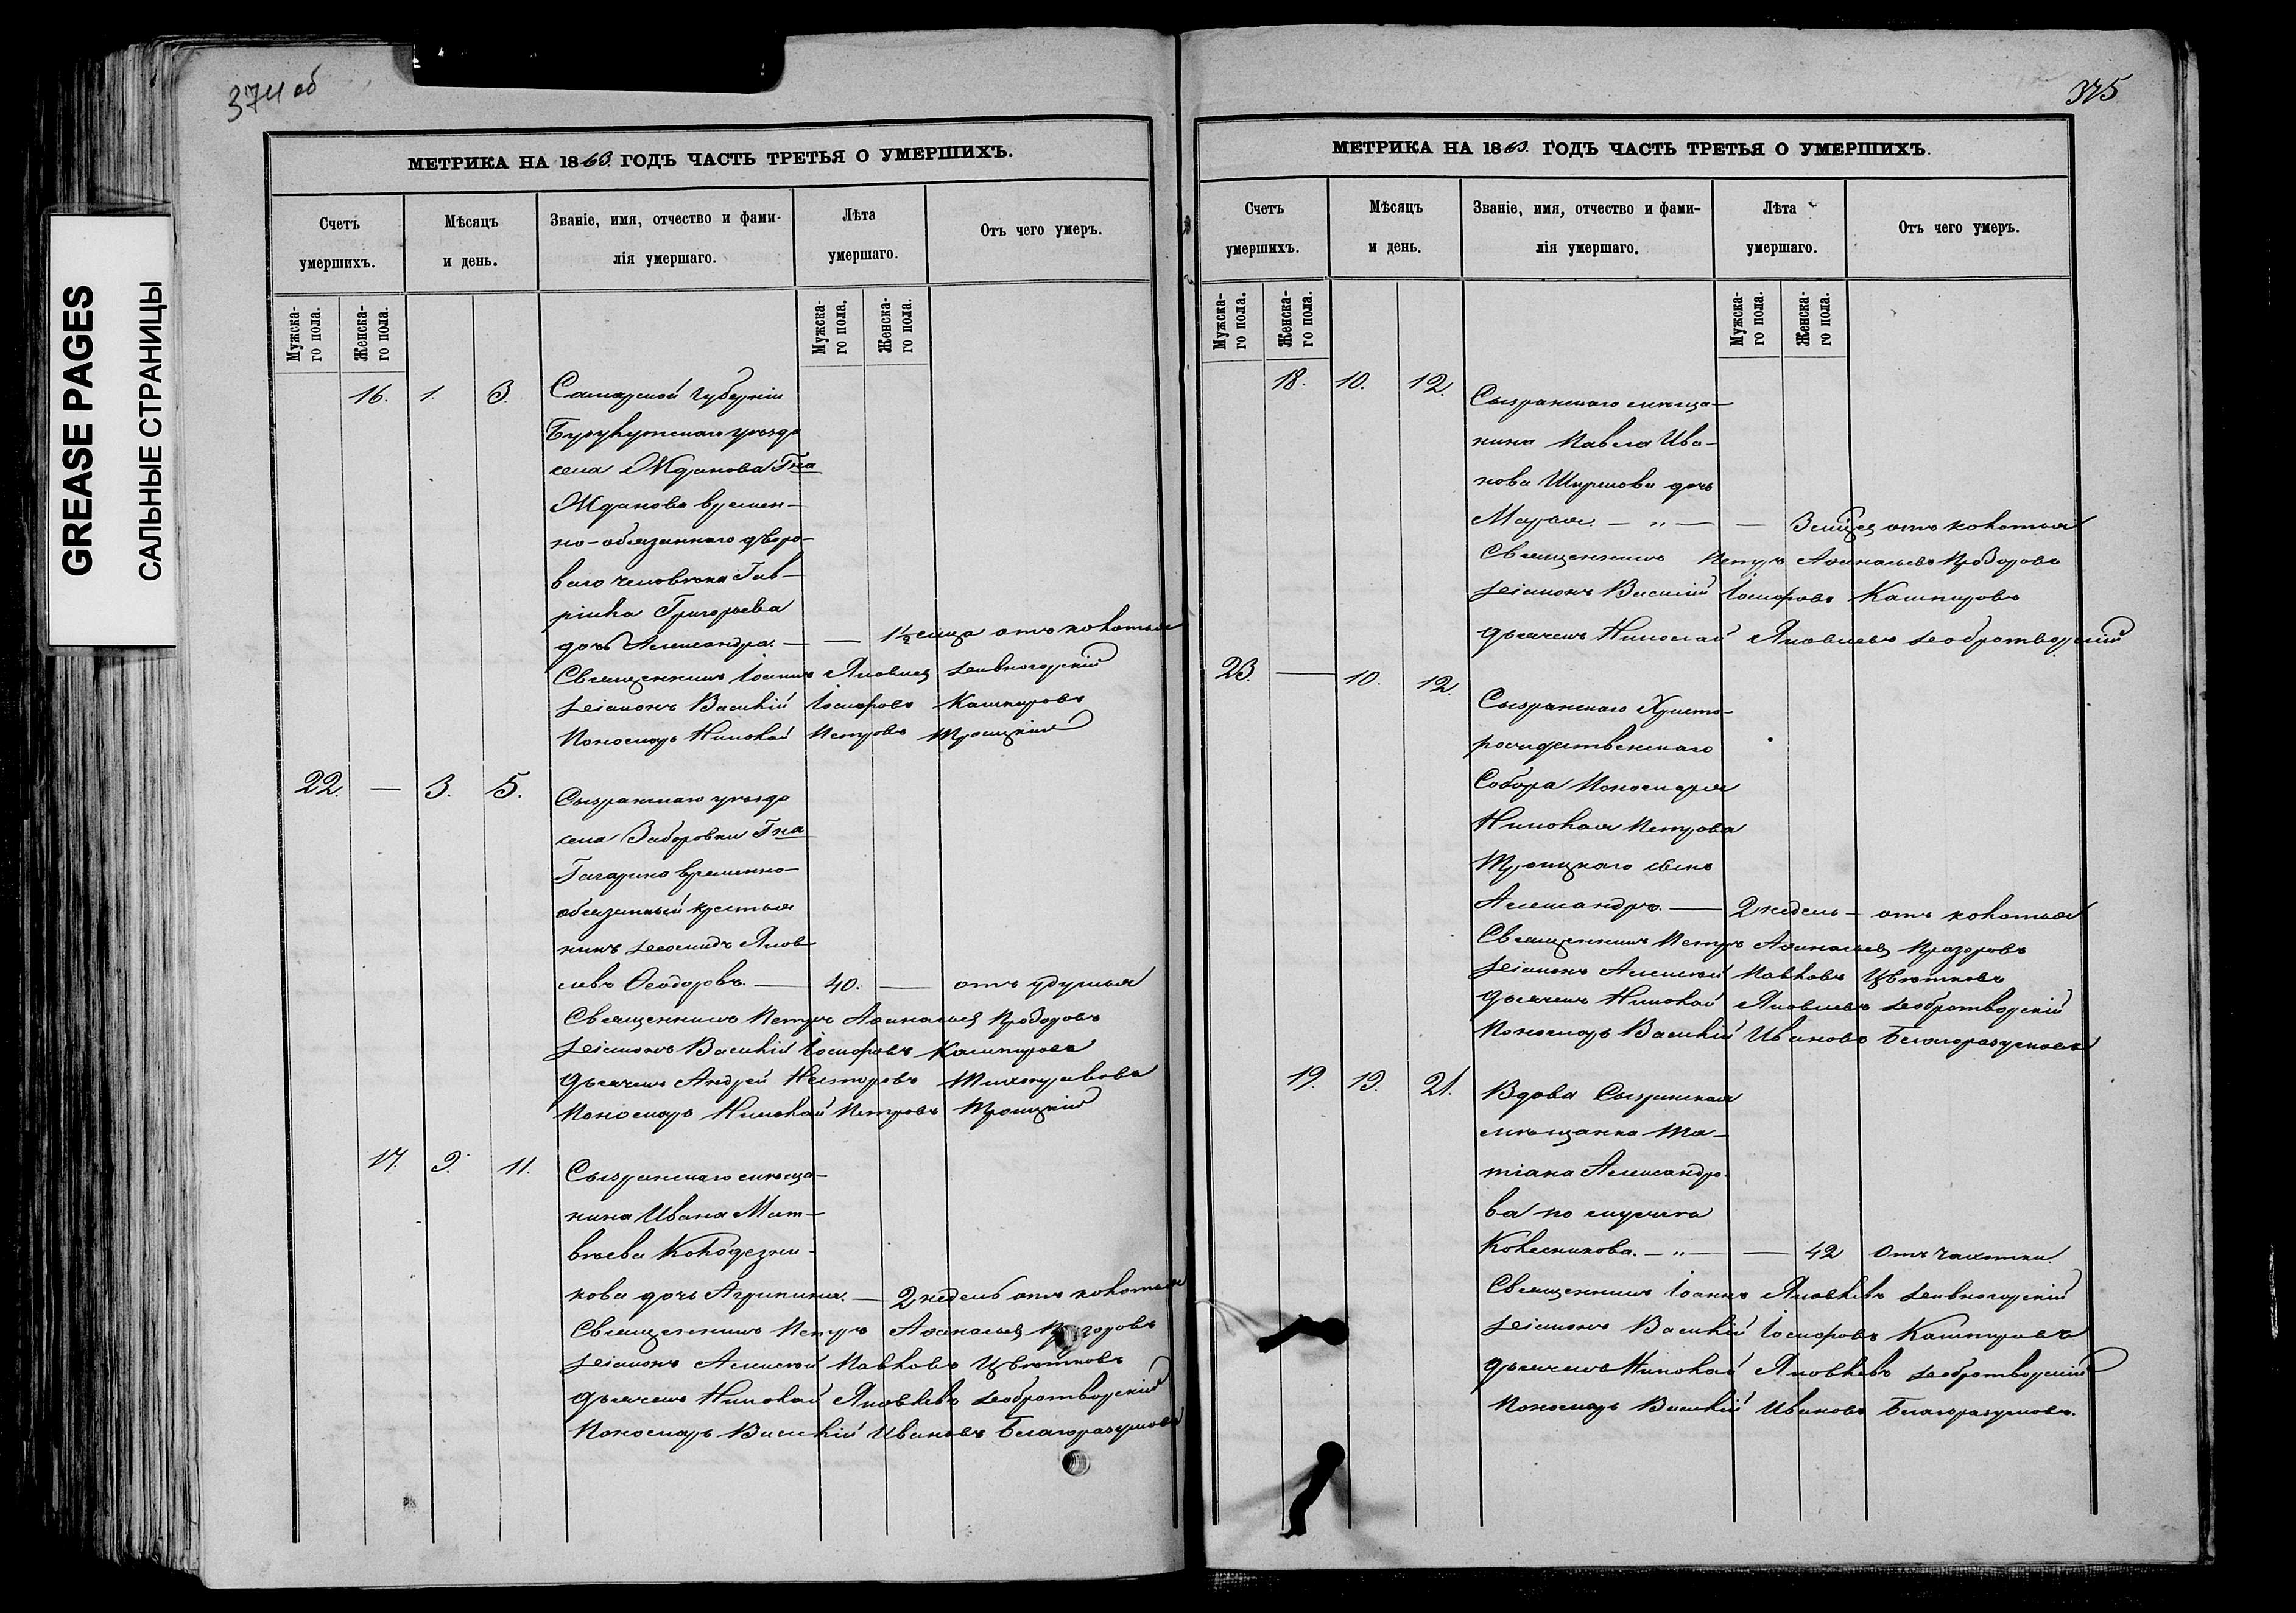 374 об
GREASE PAGES
САЛЬНЫЕ СТРАНИЦЫ
МЕТРИКА НА 1863 ГОДЪ ЧАСТЬ ТРЕТЬЯ О УМЕРШИХЪ.
Счетъ умершихъ. Мѣсяцъ и день. Званіе, имя, отчество и фами-лія умершаго. Лѣта умершаго. Отъ чего умеръ.
Мужска-го пола. Женска-го пола. Мужска-го пола. Женска-го пола.
16. 1. 3. Самарской губерніи
Бузулукскаго уѣзда
села Жданова Гна
Жданова времен-
но-обязаннаго дворо-
ваго человѣка Гав-
ріила Григорьева
дочь Александра. — — 1½ мца отъ колотья
Священникъ Іоаннъ Яковлев Дивногорскій
Діаконъ Василій Іосифовъ Кашпировъ
Пономарь Николай Петровъ Троицкій
22. — 3. 5. Сызранскаго уѣзда
села Заборовки Гна
Гагарина временно-
обязанный крестья
нинъ Леонидъ Яков
левъ Ѳеодоровъ. — 40. — отъ удушья
Священникъ Петръ Аѳанасьев Прозоровъ
Діаконъ Василій Іосифовъ Кашпировъ
Дьячекъ Андрей Нисторовъ
Пономарь Николай Петровъ Троицкій
17. 9. 11. Сызранскаго мѣща-
нина Ивана Мат-
вѣева Колодезни-
кова дочь Агрипина. — 2 недель отъ колотья
Священникъ Петръ Аѳанасьев Прозоровъ
Діаконъ Алексѣй Павловъ Цвѣтковъ
Дьячекъ Николай Яковлевъ Добротворскій
Пономарь Василій Ивановъ Благоразумовъ
375
МЕТРИКА НА 1863 ГОДЪ ЧАСТЬ ТРЕТЬЯ О УМЕРШИХЪ.
Счетъ умершихъ. Мѣсяцъ и день. Званіе, имя, отчество и фами-лія умершаго. Лѣта умершаго. Отъ чего умеръ.
Мужска-го пола. Женска-го пола. Мужска-го пола. Женска-го пола.
18. 10. 12. Сызранскаго мѣща-
нина Павла Ива-
нова Ширшова дочь
Марья. — „ — — 3 мцев отъ колотья
Священникъ Петръ Аѳанасьевъ Прозоровъ
Діаконъ Василій Іосифовъ Кашпировъ
Дьячекъ Николай Яковлевъ Добротворскій
23. — 10. 12. Сызранскаго Христо-
рождественскаго
Собора Пономаря
Николая Петрова
Троицкаго сынъ
Александръ. — 2 недель — отъ колотья
Священникъ Петръ Аѳанасьев Прозоровъ
Діаконъ Алексѣй Павловъ Цвѣтковъ
Дьячекъ Николай Яковлевъ Добротворскій
Пономарь Василій Ивановъ Благоразумовъ
19. 19. 21. Вдова Сызранская
мѣщанка Та-
тіана Александро-
ва по мужѣ
Колесникова. — „ — — 42 Отъ чахотки.
Священникъ Іоаннъ Яковлевъ Дивногорскій
Діаконъ Василій Іосифовъ Кашпировъ
Дьячекъ Николай Яковлевъ Добротворскій
Пономарь Василій Ивановъ Благоразумовъ.